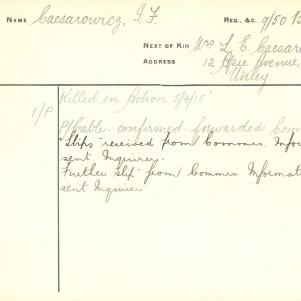 NAME Caesarowicz, I. F. REG. &C. 9/50 B
NEXT OF KIN Mrs L. E. Caesaro
ADDRESS 12 Avenue,
Unley.
1/P Killed in Action 5/4/18
P/Cable. confirmed forwarded Comm
"Slips" received from Commrs. Infor
sent Inquirer.
Further slip from Commrs Informat
sent Inquirer